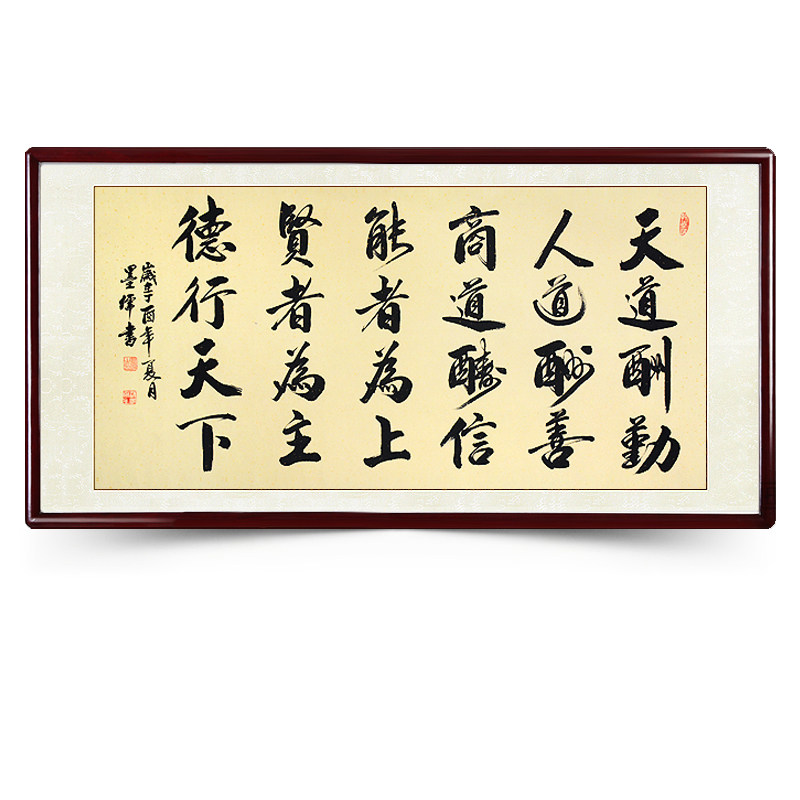 天道酬勤
人道酬善
商道醻信
能者為上
賢者為主
德行天下
歲酉年夏月
墨書